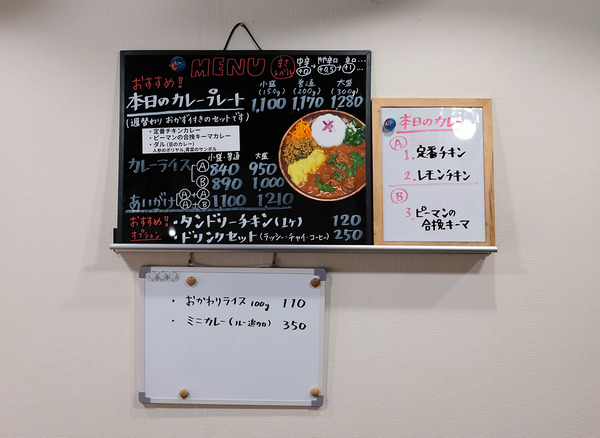 MENU
辛さレベル
中辛 +0 → 中辛口 +0.5 → 辛口 +1 ...
おすすめ!!
小盛 (150g) 普通 (200g) 大盛 (300g)
本日のカレープレート 1,100 1,170 1280
(週替わり おかず付きのセットです)
・定番チキンカレー
・ピーマンの合挽キーマカレー
・ダル(豆のカレー)
人参のポリヤル,青菜のサンボル
小盛・普通 大盛
カレーライス Ⓐ 840 950
Ⓑ 890 1,000
あいがけ Ⓐ+Ⓐ Ⓐ+Ⓑ 1100 1210
おすすめ!オプション
・タンドリーチキン(1ケ) 120
・ドリンクセット(ラッシー・チャイ・コーヒー) 250
本日のカレー
Ⓐ
1. 定番チキン
2. レモンチキン
Ⓑ
3. ピーマンの
合挽キーマ
・おかわりライス 100g 110
・ミニカレー(ルー追加) 350